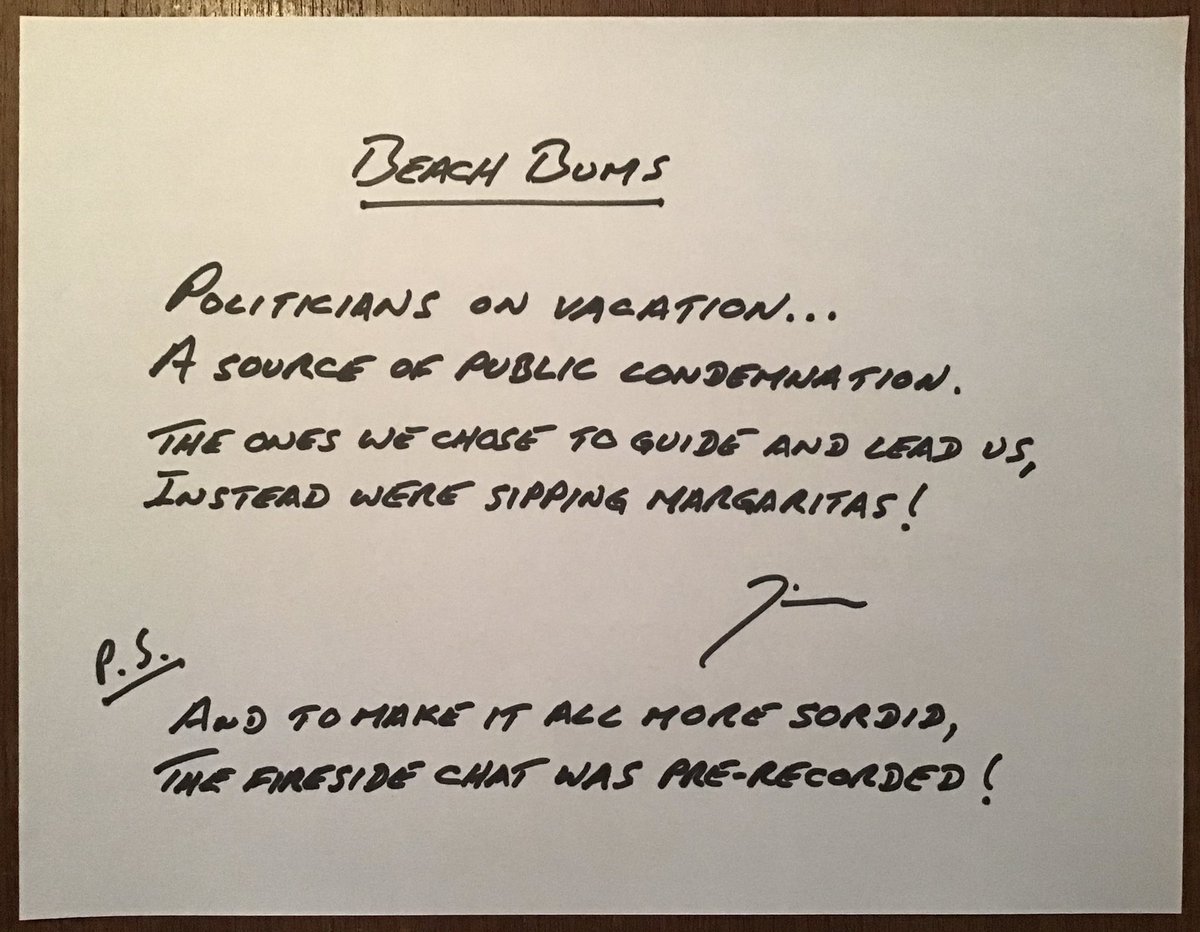 BEACH BUMS
POLITICIANS ON VACATION...
A SOURCE OF PUBLIC CONDEMNATION.
THE ONES WE CHOSE TO GUIDE AND LEAD US,
INSTEAD WERE SIPPING MARGARITAS!
Jim
P.S.
AND TO MAKE IT ALL MORE SORDID,
THE FIRESIDE CHAT WAS PRE-RECORDED!